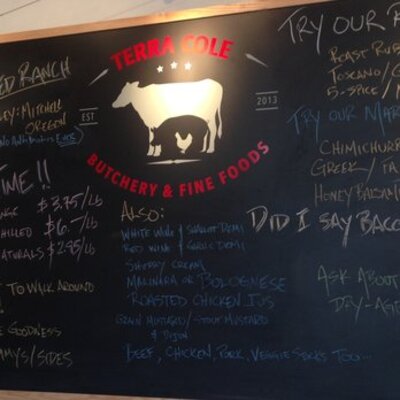 TERRA COLE
EST
2013
BUTCHERY & FINE FOODS
ED RANCH
LEY: MITCHELL
OREGON
NO Antibiotics EVER
TIME!!
$3.75/lb
HILLED $6.-/lb
NATURALS $2.95/lb
TO WALK AROUND
!
GOODNESS
MMYS/SIDES
ALSO:
WHITE WINE & SHALLOT DEMI
RED WINE & GARLIC DEMI
SHERRY CREAM
MARINARA OR BOLOGNESE
ROASTED CHICKEN JUS
GRAIN MUSTARD/STOUT MUSTARD
& DIJON
BEEF, CHICKEN, PORK, VEGGIE STKS TOO...
TRY OUR R
ROAST RUB
TOSCANO/G
5-SPICE/M
TRY OUR MAR
CHIMICHURR
GREEK/FA
HONEY BALSAMI
DID I SAY BACO
ASK ABOUT
DRY-AGE